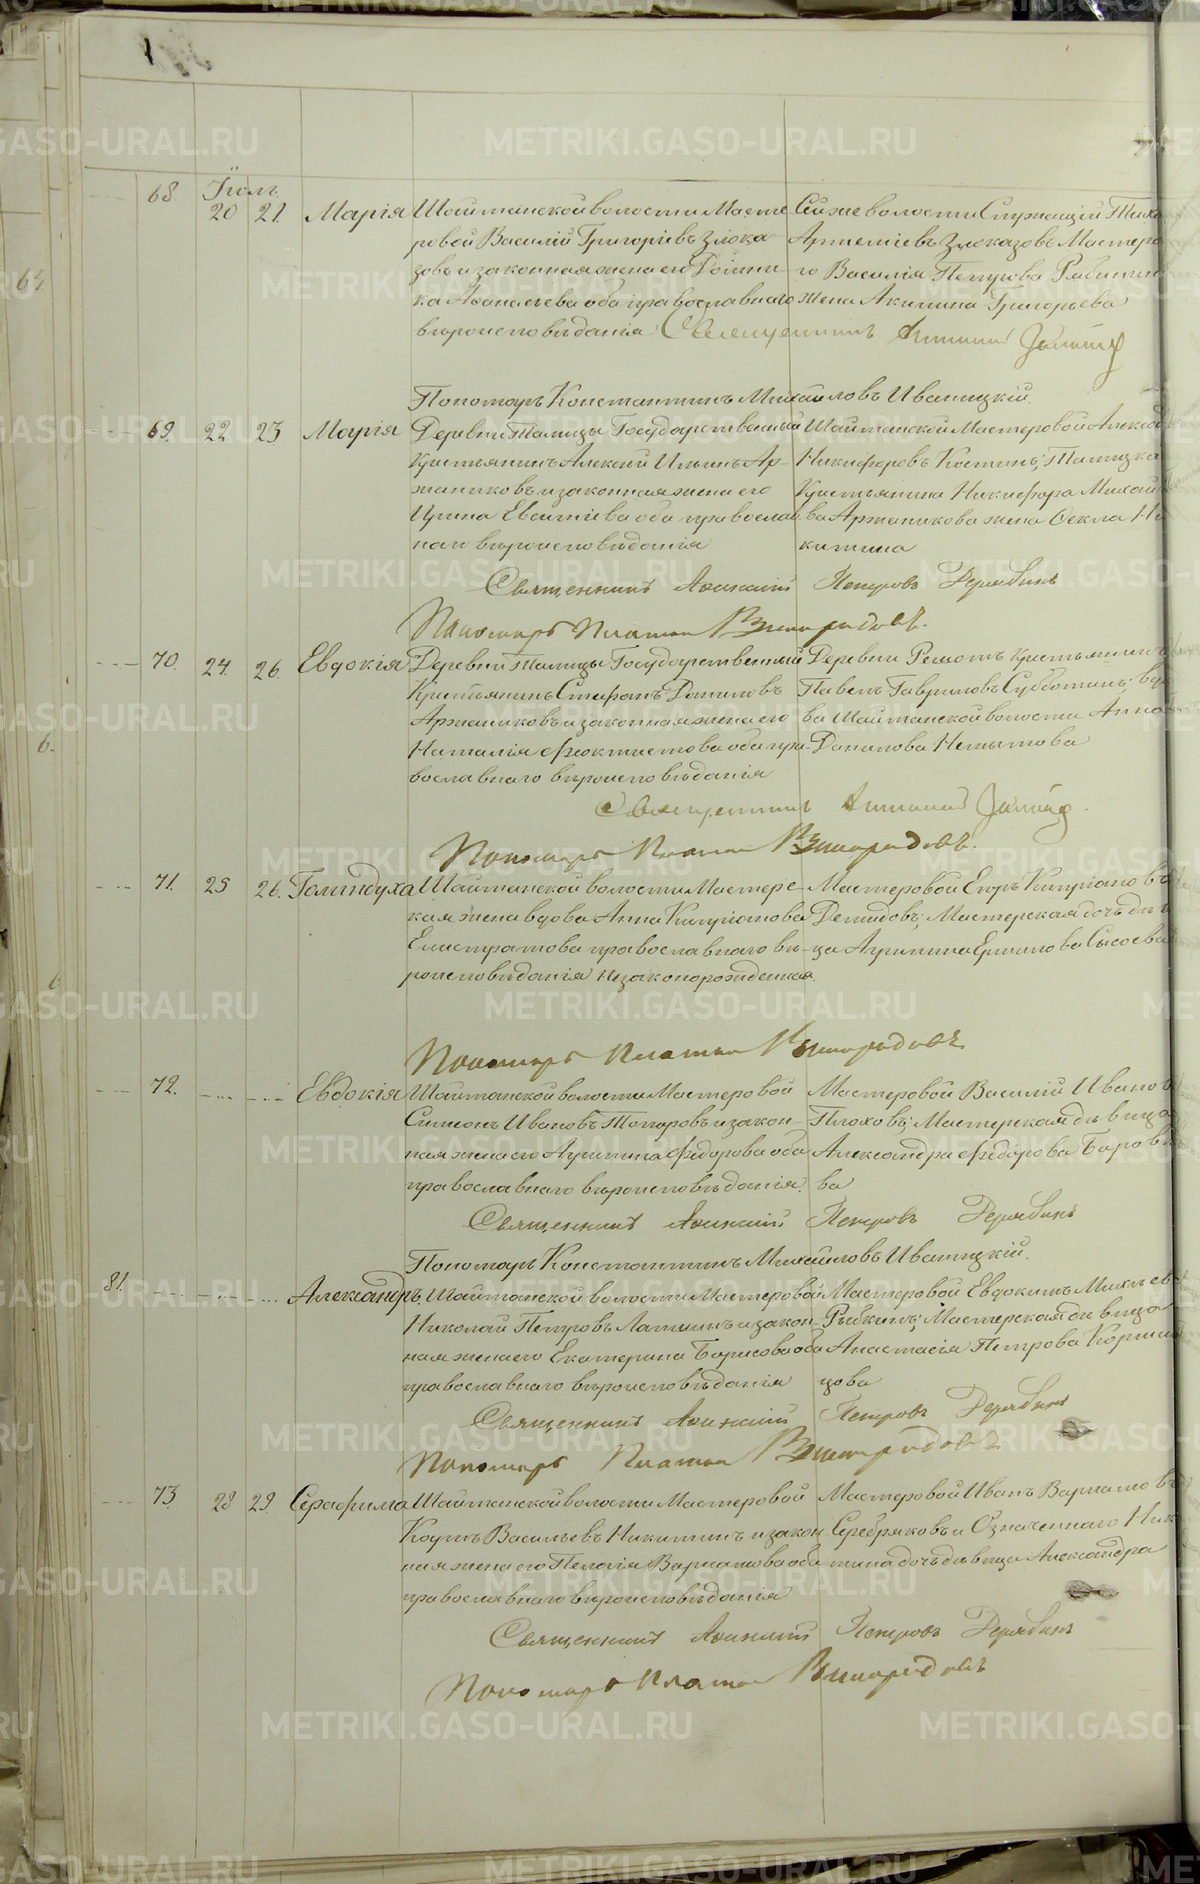 METRIKI.GASO-URAL.RU
68 Іюль 20 21 Марія
Шайтанской волости Масте-
ровой Василій Григоріевъ Злока-
зовъ и законная жена его Домни-
ка Афанасьева оба православнаго
вѣроисповѣданія
Сей же волости Служащій
Артеміевъ Злоказовъ Мастеро
го Василія Петрова
жена Акилина Григорьева
Священникъ
Пономарь Константинъ Михайловъ Иваницкій.
69. 22 23 Марія
Деревни Талицы Государственный
Крестьянинъ Алексий Ильинъ Ар-
жанниковъ и законная жена его
Ирина Евсигніева оба православ
наго вѣроисповѣданія
Шайтанской Мастеровой
Никифоровъ Костинъ; Талицка
Крестьянина Никифора Михай
ва Аржаникова жена Фекла Ни
китина
Священникъ Петровъ Дерябинъ
Пономарь Платон Виноградовъ.
70. 24. 26. Евдокія
Деревни Талицы Государственный
Крестьянинъ Стефанъ Даниловъ
Аржанниковъ и законная жена его
Наталія Феоктистова оба пра-
вославнаго вѣроисповѣданія
Деревни Решотъ крестьянинъ
Павелъ Гавриловъ Субботинъ; вдо
ва Шайтанской волости Анна
Данилова
Священникъ
Пономарь Платон Виноградовъ.
71. 25 26. Голиндуха
Шайтанской волости Мастерс-
кая жена вдова Анна Кипріянова
Елистратова православнаго вѣ-
роисповѣданія Незаконорожденная.
Мастеровой Егоръ Кипріановъ
Демидовъ; Мастерская дочь дѣв
ца Агрипина Ермилова Сысоева
Пономарь Платон Виноградовъ
72. Евдокія
Шайтанской волости Мастеровой
Симеонъ Ивановъ Топоровъ и закон-
ная жена его Агрипина Федорова оба
православнаго вѣроисповѣданія.
Мастеровой Василій Ивановъ
Плоховъ; Мастерская дѣвица
Александра Федорова
ва
Священникъ Петровъ Дерябинъ
Пономарь Константинъ Михайловъ Иваницкій.
81. Александръ.
Шайтанской волости Мастеровой
Николай Петровъ и закон-
ная жена его Екатерина Борисова оба
православнаго вѣроисповѣданія
Мастеровой Евдокимъ
Рыбкинъ; Мастерская дѣвица
Анастасія Петрова
цова
Священникъ Петровъ Дерябинъ
Пономарь Платон Виноградовъ
73. 28 29. Серафима
Шайтанской волости Мастеровой
Васильевъ Никитинъ и закон
ная жена его Пелагія Варламова оба
православнаго вѣроисповѣданія
Мастеровой Иванъ Варламовъ
Серебряковъ и Означеннаго Ник
тина дочь дѣвица Александра
Священникъ Петровъ Дерябинъ
Пономарь Платон Виноградовъ